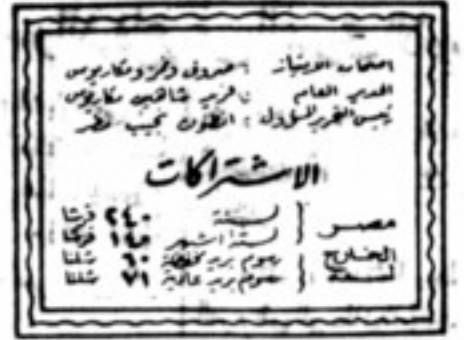 اصحاب الامتياز : صروف ونمر ومكاريوس
المدير العام : فريد شاهين مكاريوس
رئيس التحرير المسؤول : انطون نجيب مطر
الاشتراكات
مصر { لسنة ٢٤٠ قرشا
لستة اشهر ١٤٥ قرشا
الخارج لسنة { رسوم بريد مخفضة ٦٠ شلنا
رسوم بريد عالية ٧١ شلنا